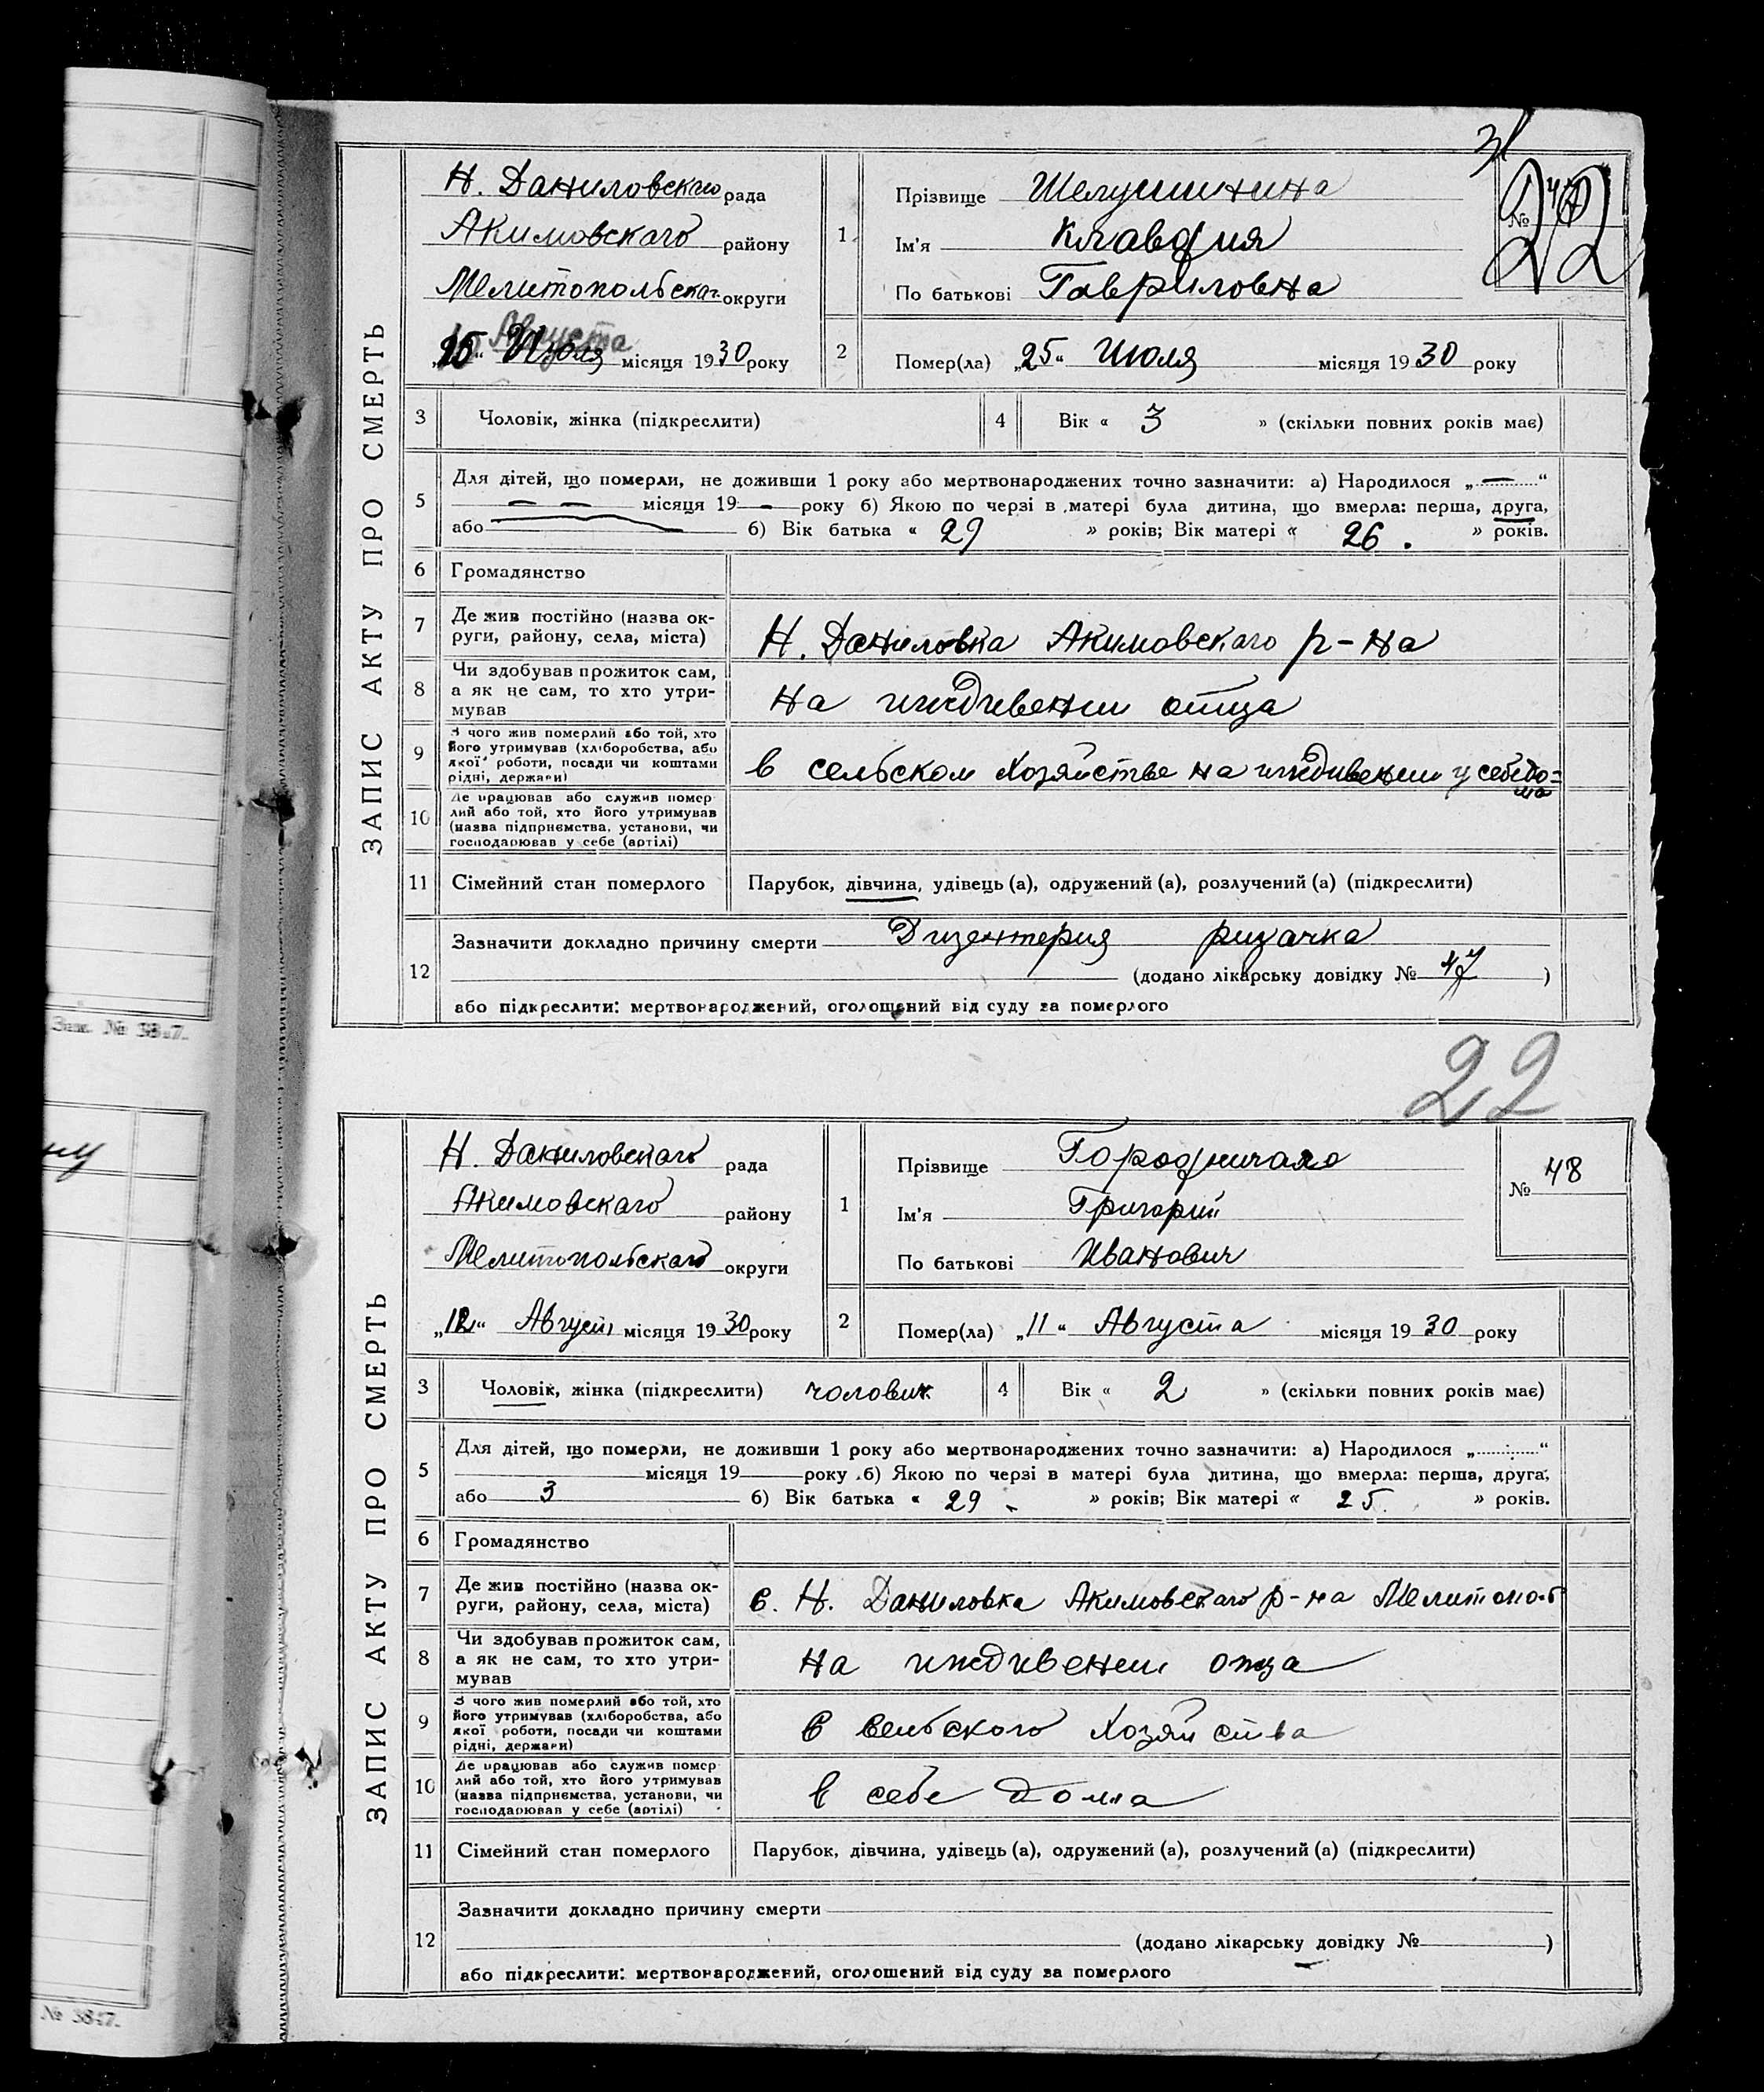 31
ЗАПИС АКТУ ПРО СМЕРТЬ
Н. Даниловскаго рада
Акимовскаго району
Мелитопольскаг. округи
Августа
„25“ Июля місяця 1930 року
1 Прізвище Шелушинина
Ім'я Клавдия
По батькові Гавриловна
№ 47
22
2 Помер(ла) „25“ Июля місяця 1930 року
3 Чоловік, жінка (підкреслити)
4 Вік « 3 » (скільки повних років має)
5 Для дітей, що померли, не доживши 1 року або мертвонароджених точно зазначити: а) Народилося „ — “
— — місяця 19 — року б) Якою по черзі в матері була дитина, що вмерла: перша, друга,
або б) Вік батька « 29 » років; Вік матері « 26 . » років.
6 Громадянство
7 Де жив постійно (назва ок-
руги, району, села, міста)
Н. Даниловка Акимовскаго р-на
8 Чи здобував прожиток сам,
а як не сам, то хто утри-
мував
на иждивении отца
9 З чого жив померлий або той, хто
його утримував (хліборобства, або
якої роботи, посади чи коштами
рідні, держави)
в сельском хозяйстве на иждивении у себе до=
ма
10 Де працював або служив помер
лий або той, хто його утримував
(назва підприємства, установи, чи
господарював у себе (артілі)
11 Сімейний стан померлого
Парубок, дівчина, удівець (а), одружений (а), розлучений (а) (підкреслити)
12 Зазначити докладно причину смерти Дизентерия ризачка
(додано лікарську довідку № 47 )
або підкреслити: мертвонароджений, оголошений від суду за померлого
Зам. № 3847.
22
ЗАПИС АКТУ ПРО СМЕРТЬ
Н. Даниловскаго рада
Акимовскаго району
Мелитопольскаго округи
„12“ Август місяця 1930 року
1 Прізвище
Ім'я Григорий
По батькові Иванович
№ 48
2 Помер(ла) „11“ Августа місяця 1930 року
3 Чоловік, жінка (підкреслити) чоловик
4 Вік « 2 » (скільки повних років має)
5 Для дітей, що померли, не доживши 1 року або мертвонароджених точно зазначити: а) Народилося „ “
місяця 19 року б) Якою по черзі в матері була дитина, що вмерла: перша, друга,
або 3 б) Вік батька « 29 » років; Вік матері « 25 » років.
6 Громадянство
7 Де жив постійно (назва ок-
руги, району, села, міста)
с. Н. Даниловка Акимовскаго р-на Мелитопо.б
8 Чи здобував прожиток сам,
а як не сам, то хто утри-
мував
на иждивении отца
9 З чого жив померлий або той, хто
його утримував (хліборобства, або
якої роботи, посади чи коштами
рідні, держави)
в сельского хозяйства
10 Де працював або служив помер
лий або той, хто його утримував
(назва підприємства, установи, чи
господарював у себе (артілі)
в себе дома
11 Сімейний стан померлого
Парубок, дівчина, удівець (а), одружений (а), розлучений (а) (підкреслити)
12 Зазначити докладно причину смерти
(додано лікарську довідку № )
або підкреслити: мертвонароджений, оголошений від суду за померлого
№ 3847.